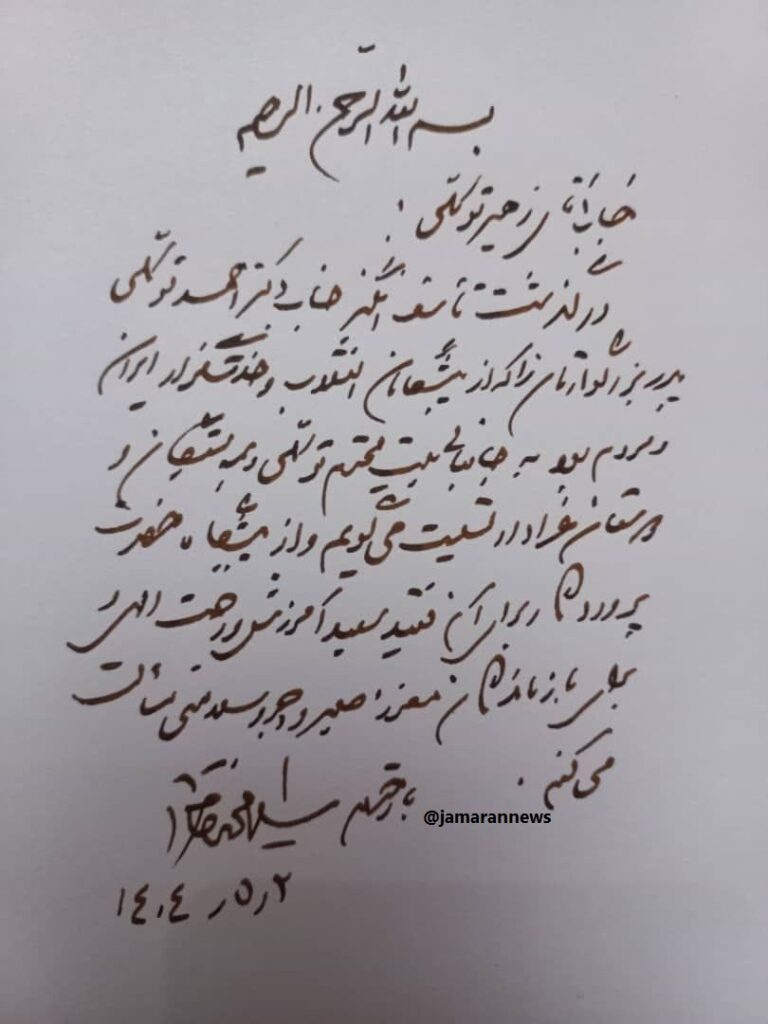 بسم الله الرحمن الرحیم
جناب آقای زهیر توکلّی!
درگذشت تأسف انگیز جناب دکتر احمد توکلّی
پدر بزرگوارتان را که از پیشگامان انقلاب و خدمتگزار ایران
و مردم بود به جنابعالی بیت محترم توکلّی و به بستگان و
دوستان عزادار تسلیت می گویم و از پیشگاه حضرت
پروردگار برای آن فقید سعید آمرزش و رحمت الهی و
برای بازماندگان معزز صبر و اجر و سلامتی مسألت
می کنم.
با احترام سید محمد خاتمی
@jamarannews
۱۴۰۴ر۵ر۲